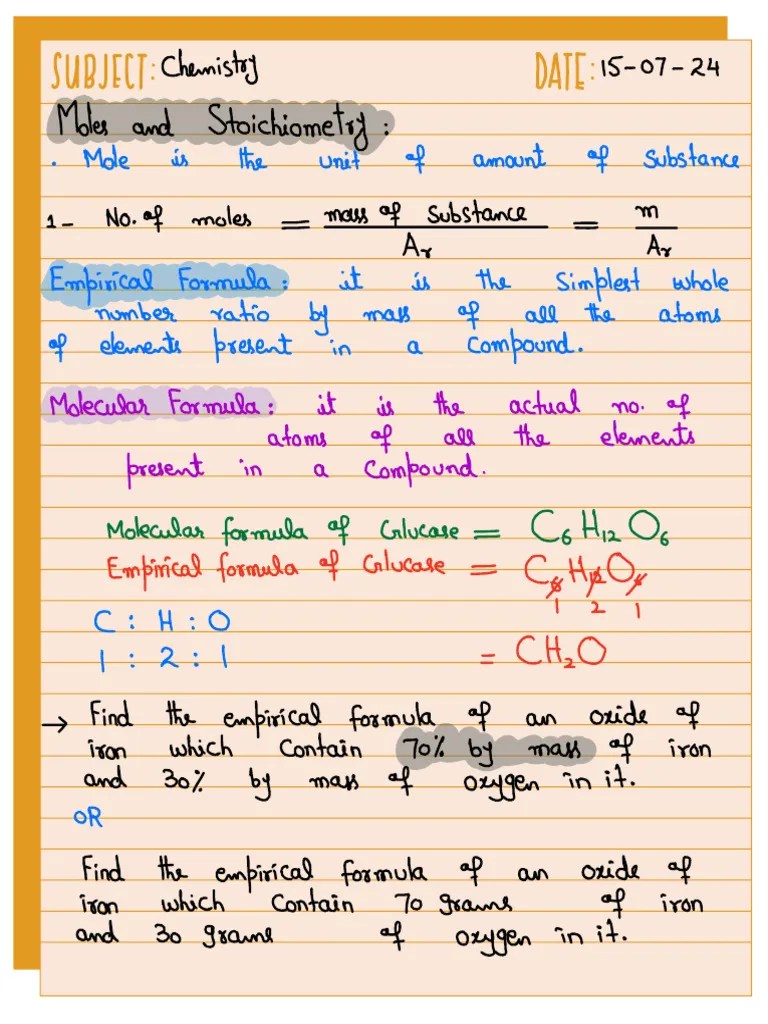 SUBJECT: Chemistry DATE: 15-07-24
Moles and Stoichiometry:
. Mole is the unit of amount of Substance
1- No. of moles = mass of Substance / Ar = m / Ar
Empirical Formula: it is the Simplest whole
number ratio by mass of all the atoms
of elements present in a Compound.
Molecular Formula: it is the actual no. of
atoms of all the elements
present in a Compound.
Molecular formula of Glucase = C6H12O6
Empirical formula of Glucase = C6H12O6
1 2 1
C : H : O
1 : 2 : 1 = CH2O
→ Find the empirical formula of an oxide of
iron which Contain 70% by mass of iron
and 30% by mass of oxygen in it.
OR
Find the empirical formula of an oxide of
iron which Contain 70 grams of iron
and 30 grams of oxygen in it.